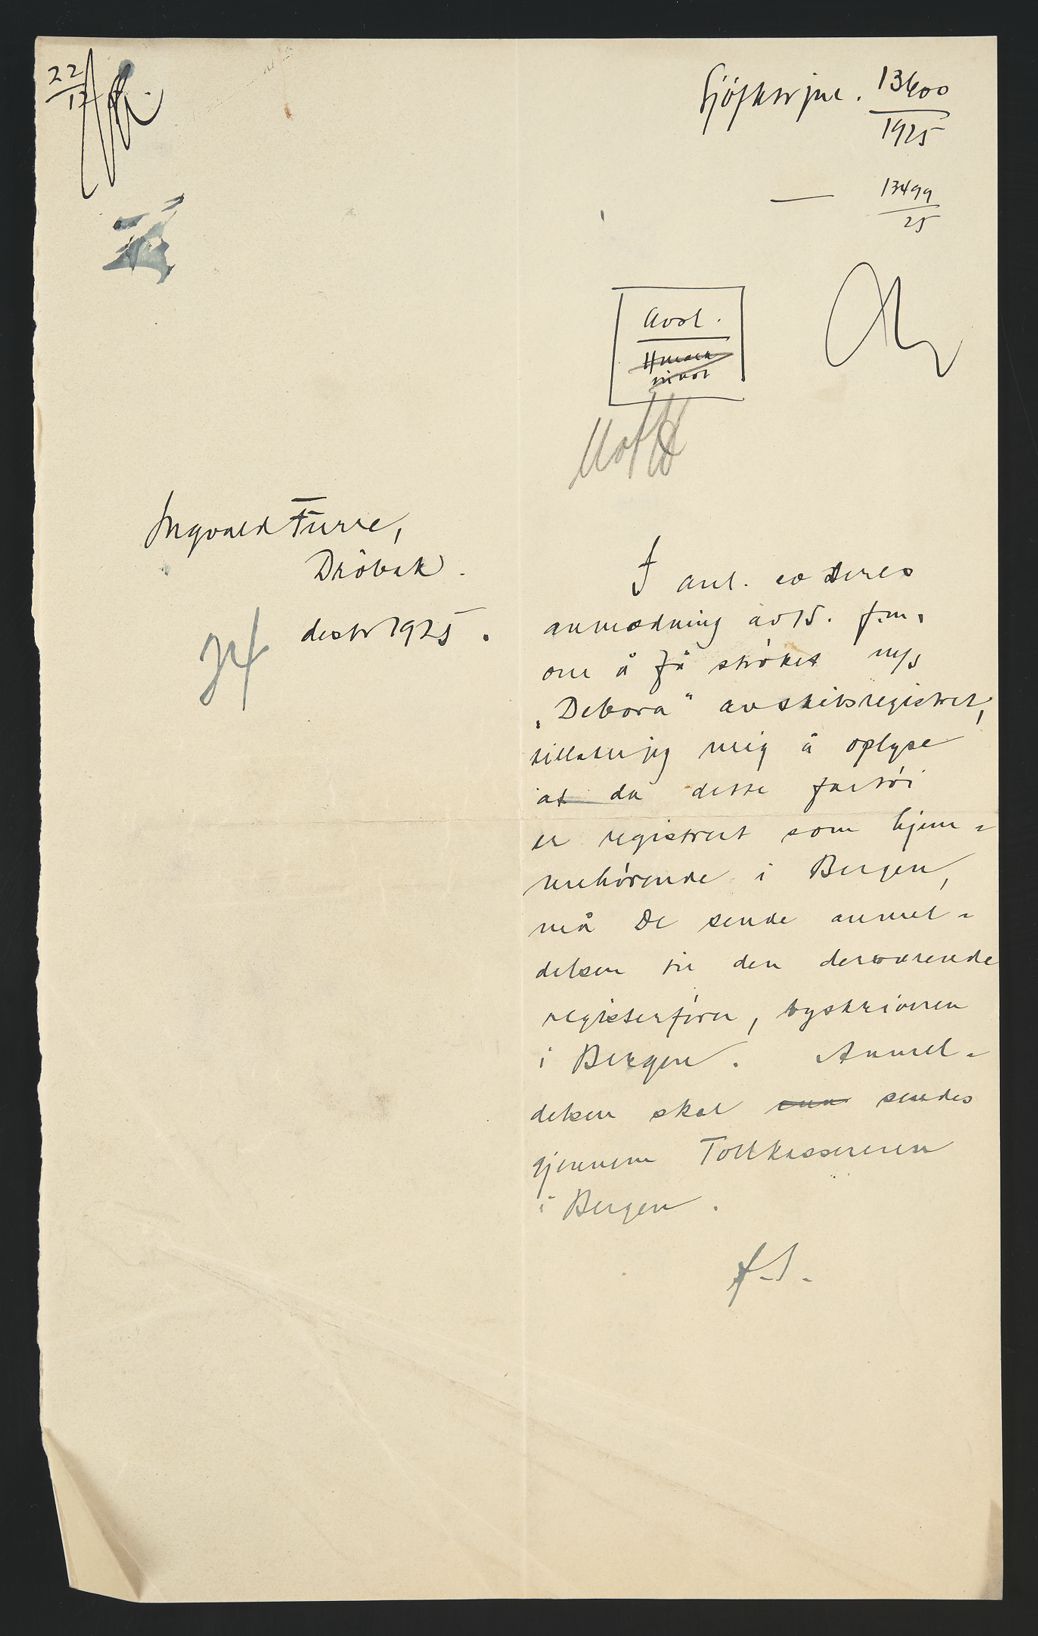 22
12
Sjöfktr jnl. 13400
1925
— 13499
25
Avst.
Ingvald Furre,
Dröbak.
desbr 1925.
I anl. av Deres
anmodning av 15. f.m.
om å få strøket m/s
"Debora" av skibsregistret,
tillater jeg mig å oplyse
at da dette fartöi
er registrert som hjem=
mehörende i Bergen,
må De sende anmel=
delsen til den derværende
registerförer, byskriveren
i Bergen. Anmel=
delsen skal sendes
gjennem Tollkassereren
i Bergen.
f.S.